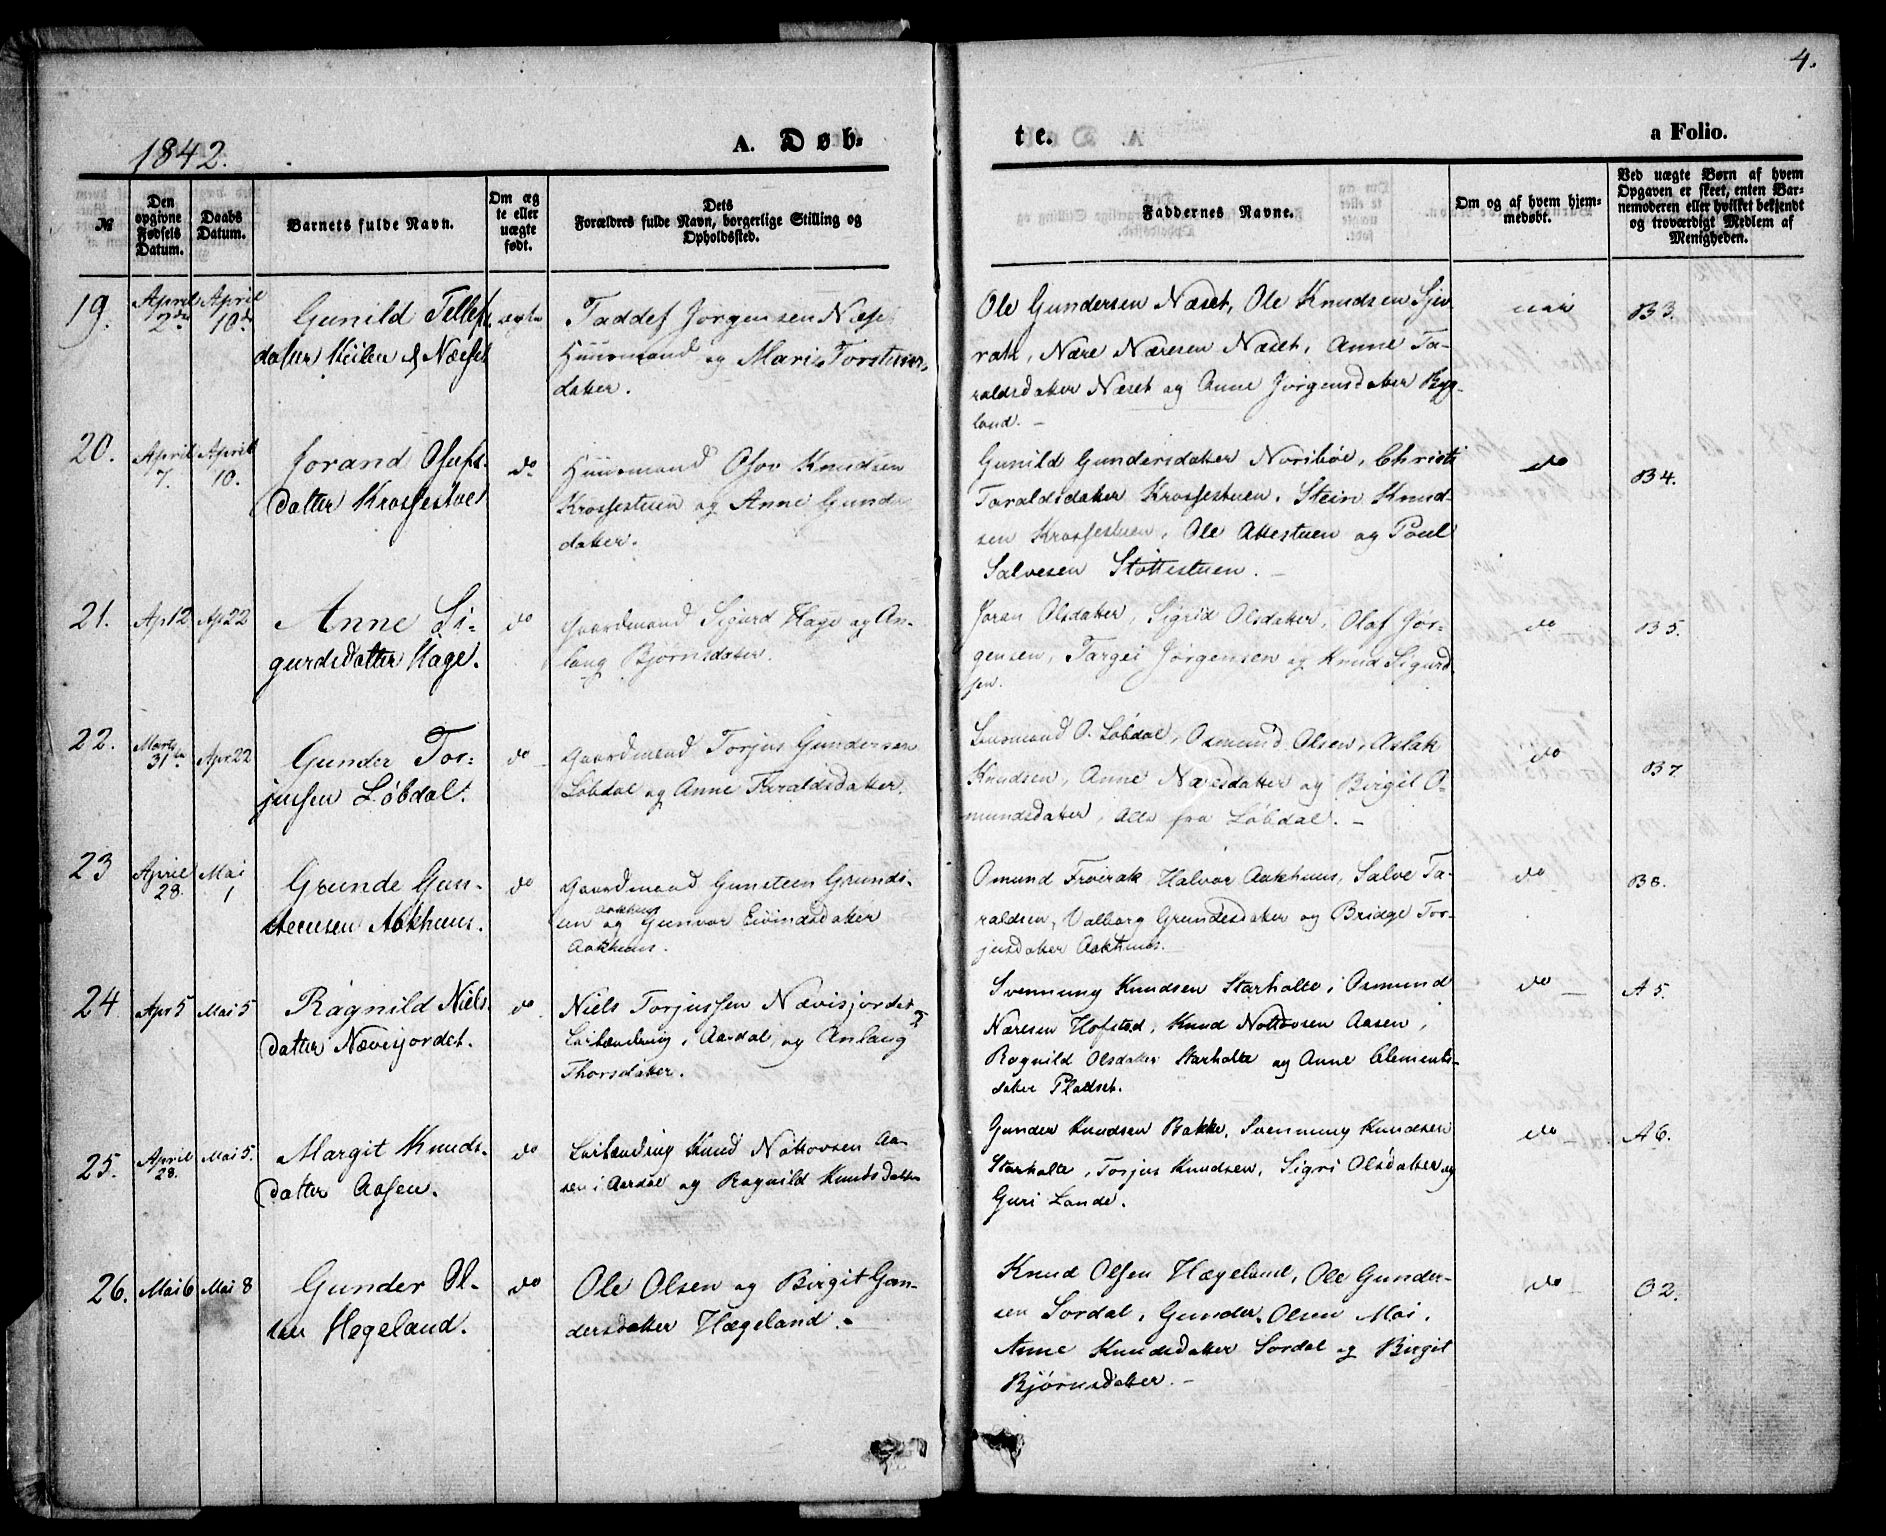 4.
1842.
A. Døb-
te.
a Folio.
№
Den opgivne Fødsels Datum.
Daabs Datum.
Barnets fulde Navn.
Om ægte eller uægte født.
Dets Forældres fulde Navn, borgerlige Stilling og Opholdssted.
Faddernes Navne.
Om og af hvem hjemmedøbt.
Ved uægte Børn af hvem Opgaven er skeet, enten Barnemoderen eller hvilket bekjendt og troværdigt Medlem af Menigheden.
19.
April 2den
April 10d
Gunild Tellefs
datter Keilen
ægte
Taddef Jörgensen Næse
Huusmand og Marie Torstens
datter.
Ole Gundersen Næset, Ole Knudsen
Nære Næresen Næset, Anne Ta-
raldsdatter Næset og Anne Jörgensdatter Byg-
land. –
nei
B3.
20.
April 7.
April 10.
Jorand Osufs
datter Krossestue
do
Huusmand Osov Knudsen
Krossestuen og Anne Gunders
datter.
Gunild Gundersdatter Noribøe, Christi
Taraldsdatter Krossestuen. Stein Knud-
sen Krossestuen, Ole Attestuen og Poul
Salvesen Støttestuen. –
do
B4.
21.
Ap 12
Ap 22
Anne Si-
gurdsdatter Hage.
do
Gaardmand Sigurd Hage og An-
laug Bjørnsdatter.
Joran Olsdatter, Sigrid Olsdatter, Olaf Jör-
gensen, Targei Jörgensen og Knud Sigurd
sen.
do
B5.
22.
Marts 31te
Apr 22
Gunder Tor-
jussen Löbdal.
do
Gaardmand Torjus Gundersen
Löbdal og Anne Taraldsdatter.
Lensmand O. Löbdal, Osmund Olsen, Aslak
Knudsen, Anne Næresdatter og Birgit O-
mundsdatter, Alle fra Löbdal. –
do
B7
23
April 28.
Mai 1
Grunde Gun-
steensen Aakhuus.
do
Gaardmand Gunsteen Grunds-
sen Aakhuus og Gunvor Eivindsdatter
Aakhuus.
Omund Frøirak, Halvor Aakhuus, Salve Ta-
raldsen, Valborg Grundesdatter og Bridge Tor-
jusdatter Aakhuus.
do
B8.
24
Apr 5
Mai 5
Ragnild Niels
datter Nævisjordet.
do.
Niels Torjussen Nævisjordet
Leilænding i Aardal og Anlaug
Thorsdatter.
Svennung Knudsen Starholte, Osmund
Næresen Hofstad, Knud Nottovsen Aasen,
Ragnild Olsdatter Starholte og Anne Clements-
datter Pladset.
do
A5.
25.
April 28.
Mai 5.
Margit Knuds-
datter Aasen.
do
Leilænding Knud Nottovsen Aa-
sen i Aardal og Ragnild Knutsdatter
Gunder Knudsen Bakke, Svennung Knudsen
Starholte, Torjus Knudsen, Sigri Olsdatter og
Guri Lande.
do
A6.
26.
Mai 6
Mai 8
Gunder Ol-
sen Hegeland.
do
Ole Olsen og Birgit Gun-
dersdatter Hægeland.
Knud Olsen Hægeland, Ole Gunder-
sen Sordal, Gunder Olsen Moi,
Anne Knudsdatter Sordal og Birgit
Bjørnsdatter. –
do
O2.